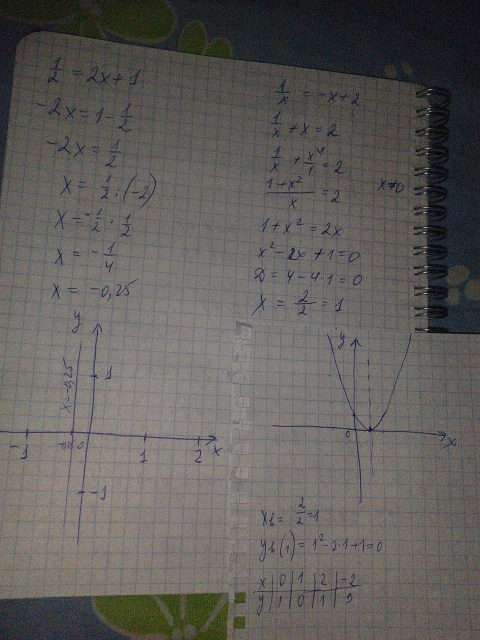 1/2 = 2x+1
-2x = 1 - 1/2
-2x = 1/2
x = 1/2 : (-2)
x = -1/2 · 1/2
x = -1/4
x = -0,25
y
x = -0,25
1
-1
0
1
2
x
-1
1/x = -x+2
1/x + x = 2
1/x + x^x/1 = 2
1+x²/x = 2
x≠0
1+x² = 2x
x²-2x+1=0
D = 4-4·1=0
x = 2/2 = 1
y
0
x
xв = 2/2 = 1
yв(1) = 1²-2·1+1=0
x | 0 | 1 | 2 | -2
y | 1 | 0 | 1 | 9